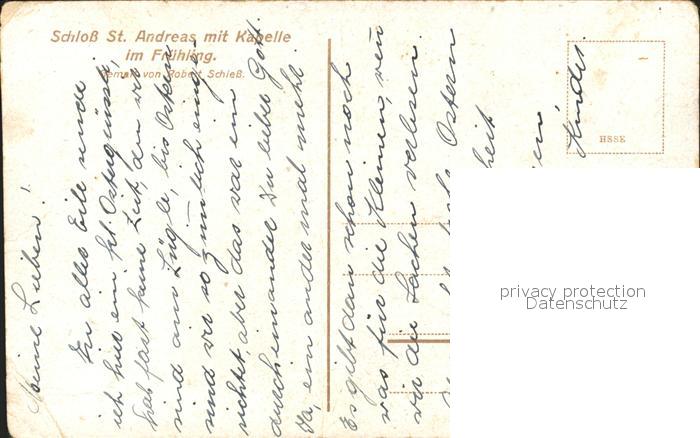 Schloß St. Andreas mit Kapelle
im Frühling.
Gemalt von Robert Schieß.
Meine Lieben!
In aller Eile sende
ich hier ein kl. Ostergrüssli,
hab fast keine Zeit, denn wir
sind am Züglä, bis Ostern
sind wir so ziemlich einge-
richtet, aber das war ein
durcheinander Du lieber Gott.
Ja, ein ander mal mehr
Es gibt dann schon noch
was für die Kleinen, wenn
wir die Sachen verlesen.
Ostern
Kinder.
HSSE
privacy protection
Datenschutz